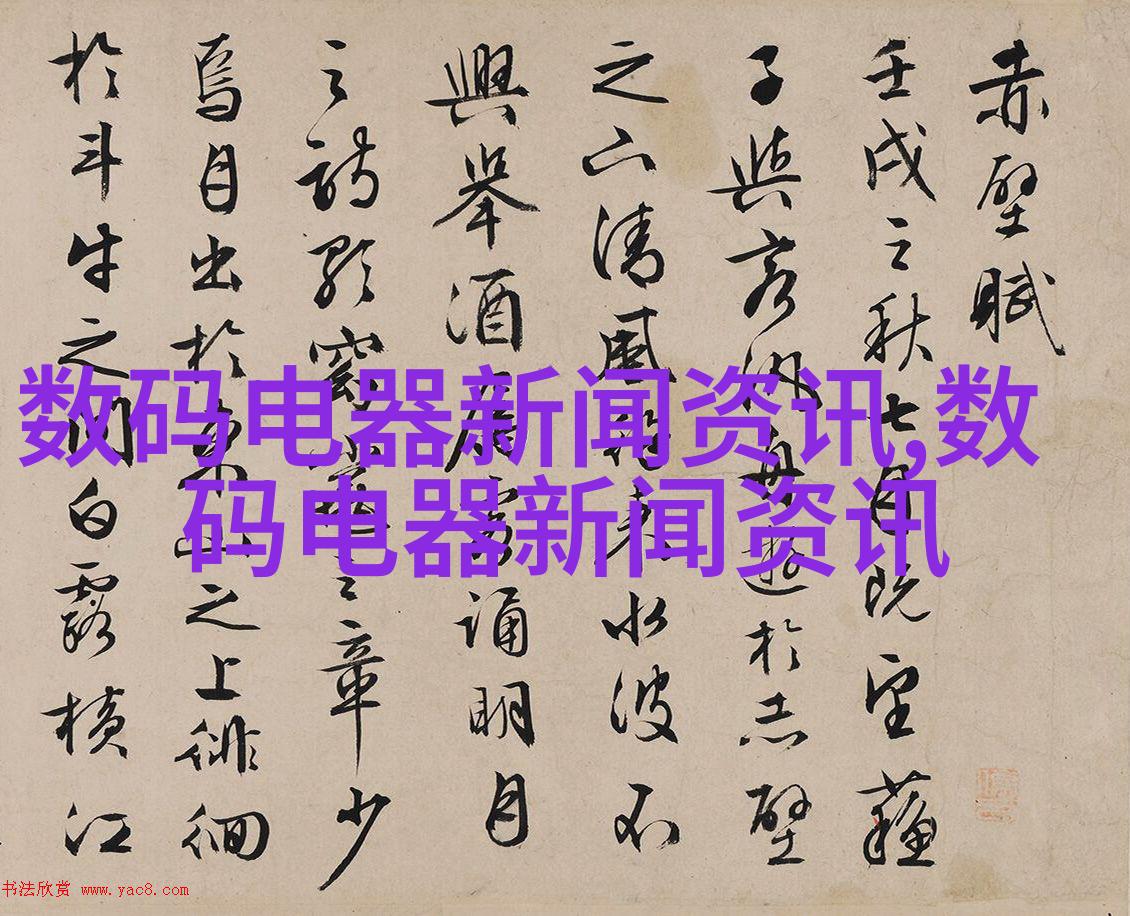 赤壁賦
壬戌之秋七月既望蘇
子與客汎舟遊於赤壁
之下清風徐來水波不
興舉酒屬客誦明月
之詩歌窈窕之章少
焉月出於東山之上徘徊
於斗牛之間白露橫江
数码电器新闻资讯,数
码电器新闻资讯
书法欣赏 www.yac8.com